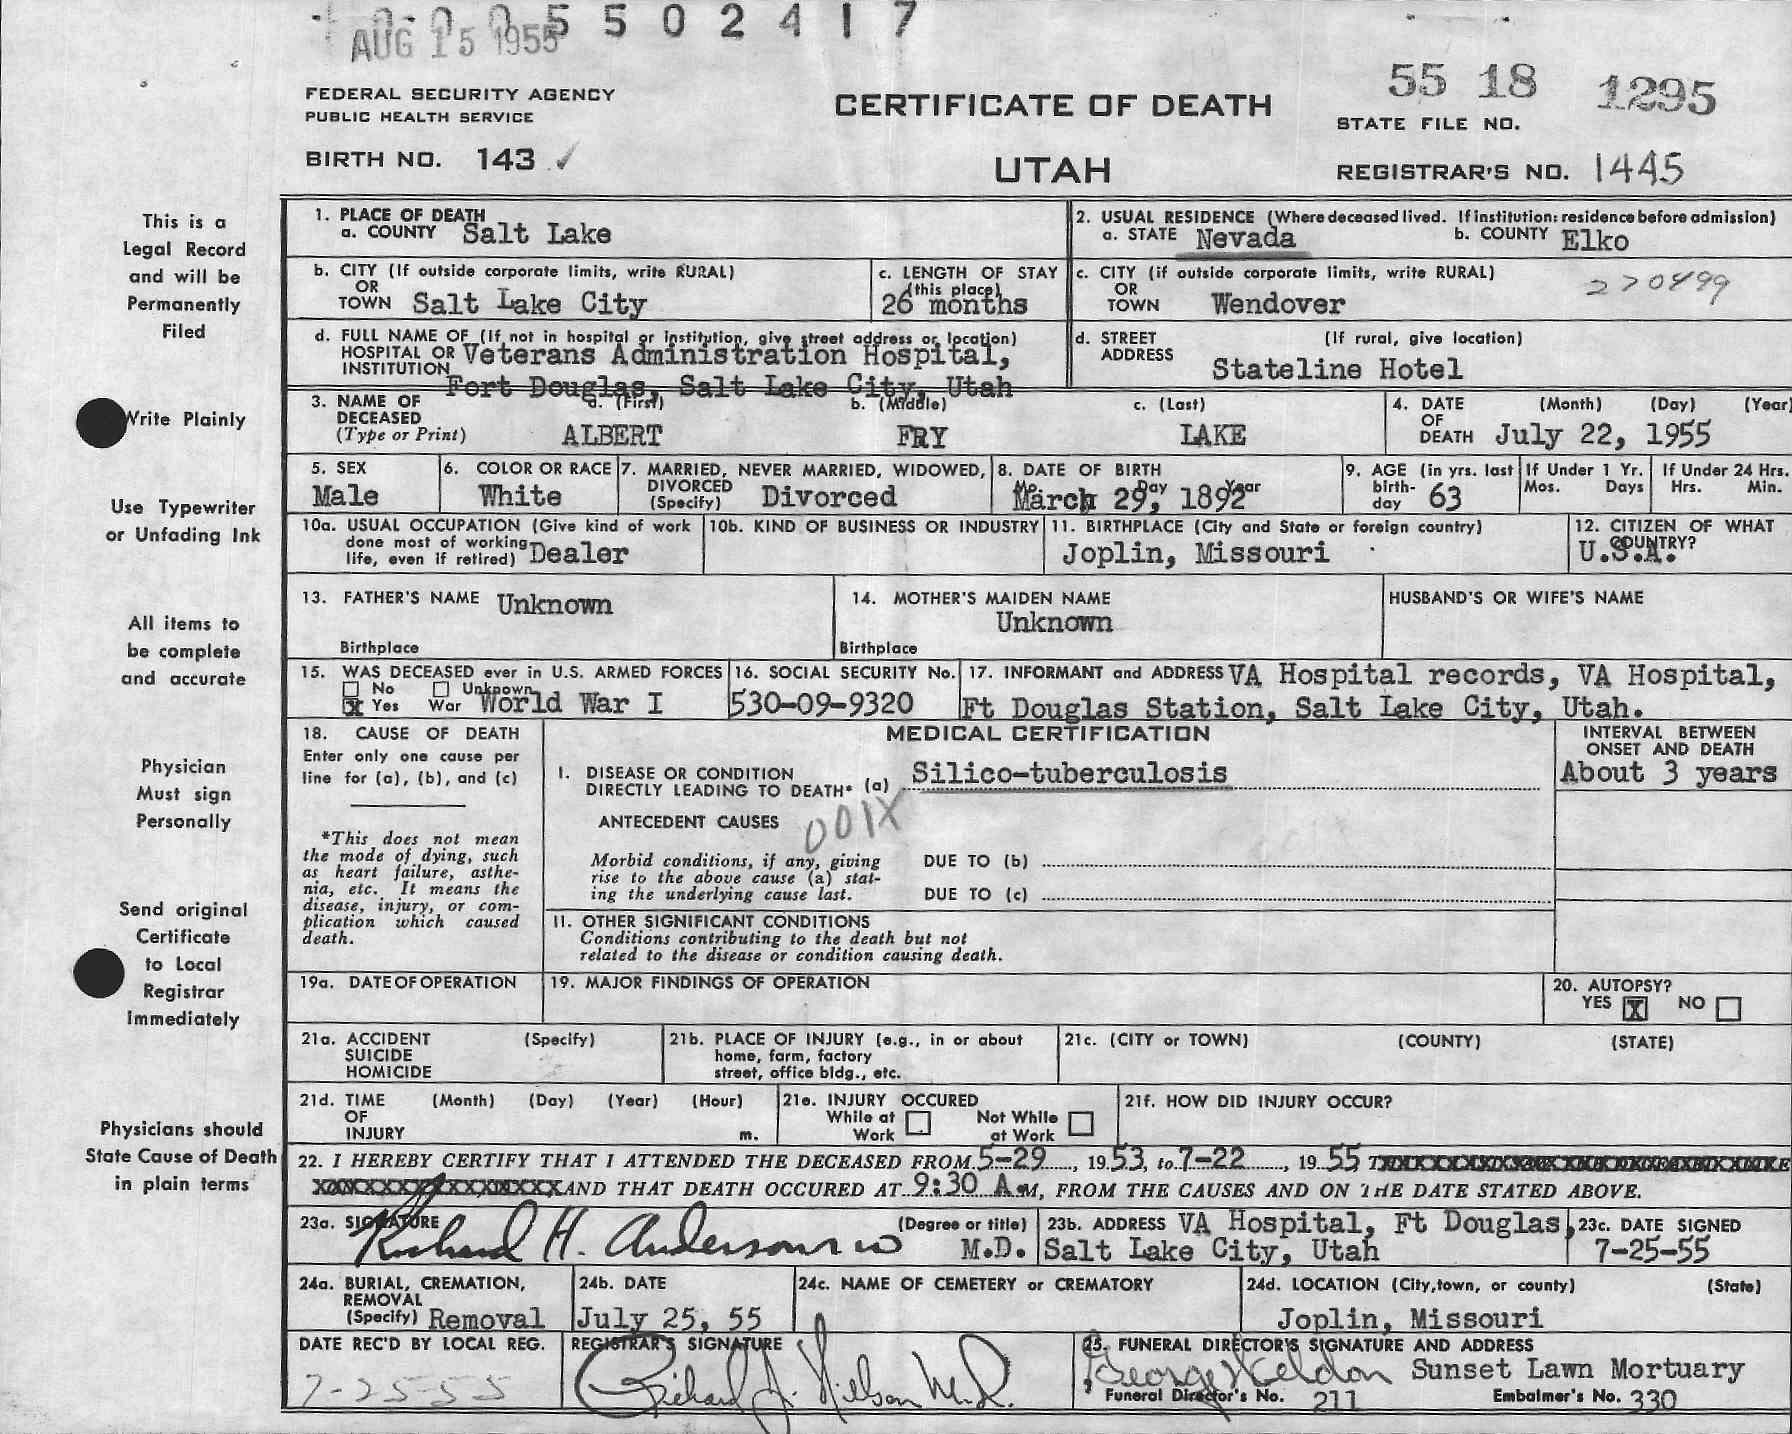 5 5 0 2 4 1 7
AUG 15 1955
FEDERAL SECURITY AGENCY
PUBLIC HEALTH SERVICE
BIRTH NO. 143 ✓
CERTIFICATE OF DEATH
UTAH
55 18 1295
STATE FILE NO.
REGISTRAR'S NO. 1445
This is a
Legal Record
and will be
Permanently
Filed
Write Plainly
Use Typewriter
or Unfading Ink
All items to
be complete
and accurate
Physician
Must sign
Personally
Send original
Certificate
to Local
Registrar
Immediately
Physicians should
State Cause of Death
in plain terms
1. PLACE OF DEATH
a. COUNTY Salt Lake
2. USUAL RESIDENCE (Where deceased lived. If institution: residence before admission)
a. STATE Nevada b. COUNTY Elko
b. CITY (If outside corporate limits, write RURAL)
OR
TOWN Salt Lake City
c. LENGTH OF STAY
(this place)
26 months
c. CITY (if outside corporate limits, write RURAL)
OR
TOWN Wendover
270499
d. FULL NAME OF (If not in hospital or institution, give street address or location)
HOSPITAL OR Veterans Administration Hospital,
INSTITUTION Fort Douglas, Salt Lake City, Utah
d. STREET (If rural, give location)
ADDRESS
Stateline Hotel
3. NAME OF
DECEASED
(Type or Print)
a. (First) b. (Middle) c. (Last)
ALBERT FRY LAKE
4. DATE (Month) (Day) (Year)
OF
DEATH July 22, 1955
5. SEX
Male
6. COLOR OR RACE
White
7. MARRIED, NEVER MARRIED, WIDOWED,
DIVORCED
(Specify) Divorced
8. DATE OF BIRTH
Mo. Day Year
March 29, 1892
9. AGE (in yrs. last
birth-
day 63
If Under 1 Yr.
Mos. Days
If Under 24 Hrs.
Hrs. Min.
10a. USUAL OCCUPATION (Give kind of work
done most of working
life, even if retired) Dealer
10b. KIND OF BUSINESS OR INDUSTRY
11. BIRTHPLACE (City and State or foreign country)
Joplin, Missouri
12. CITIZEN OF WHAT
COUNTRY?
U.S.A.
13. FATHER'S NAME Unknown
Birthplace
14. MOTHER'S MAIDEN NAME
Unknown
Birthplace
HUSBAND'S OR WIFE'S NAME
15. WAS DECEASED ever in U.S. ARMED FORCES
No Unknown
X Yes War World War I
16. SOCIAL SECURITY No.
530-09-9320
17. INFORMANT and ADDRESS VA Hospital records, VA Hospital,
Ft Douglas Station, Salt Lake City, Utah.
18. CAUSE OF DEATH
Enter only one cause per
line for (a), (b), and (c)
*This does not mean
the mode of dying, such
as heart failure, asthe-
nia, etc. It means the
disease, injury, or com-
plication which caused
death.
MEDICAL CERTIFICATION
I. DISEASE OR CONDITION
DIRECTLY LEADING TO DEATH* (a) Silico-tuberculosis
ANTECEDENT CAUSES 001X
Morbid conditions, if any, giving
rise to the above cause (a) stat-
ing the underlying cause last.
DUE TO (b)
DUE TO (c)
II. OTHER SIGNIFICANT CONDITIONS
Conditions contributing to the death but not
related to the disease or condition causing death.
INTERVAL BETWEEN
ONSET AND DEATH
About 3 years
19a. DATE OF OPERATION
19. MAJOR FINDINGS OF OPERATION
20. AUTOPSY?
YES X NO
21a. ACCIDENT (Specify)
SUICIDE
HOMICIDE
21b. PLACE OF INJURY (e.g., in or about
home, farm, factory
street, office bldg., etc.
21c. (CITY or TOWN) (COUNTY) (STATE)
21d. TIME (Month) (Day) (Year) (Hour)
OF
INJURY m.
21e. INJURY OCCURED
While at Not While
Work at Work
21f. HOW DID INJURY OCCUR?
22. I HEREBY CERTIFY THAT I ATTENDED THE DECEASED FROM 5-29, 1953, to 7-22, 1955
AND THAT DEATH OCCURED AT 9:30 A.M, FROM THE CAUSES AND ON THE DATE STATED ABOVE.
23a. SIGNATURE (Degree or title)
Richard H. Anderson M.D.
23b. ADDRESS VA Hospital, Ft Douglas,
Salt Lake City, Utah
23c. DATE SIGNED
7-25-55
24a. BURIAL, CREMATION,
REMOVAL
(Specify) Removal
24b. DATE
July 25, 55
24c. NAME OF CEMETERY or CREMATORY
24d. LOCATION (City, town, or county) (State)
Joplin, Missouri
DATE REC'D BY LOCAL REG.
7-25-55
REGISTRAR'S SIGNATURE
Richard J. Nielson M.D.
25. FUNERAL DIRECTOR'S SIGNATURE AND ADDRESS
George Sunset Lawn Mortuary
Funeral Director's No. 211 Embalmer's No. 330